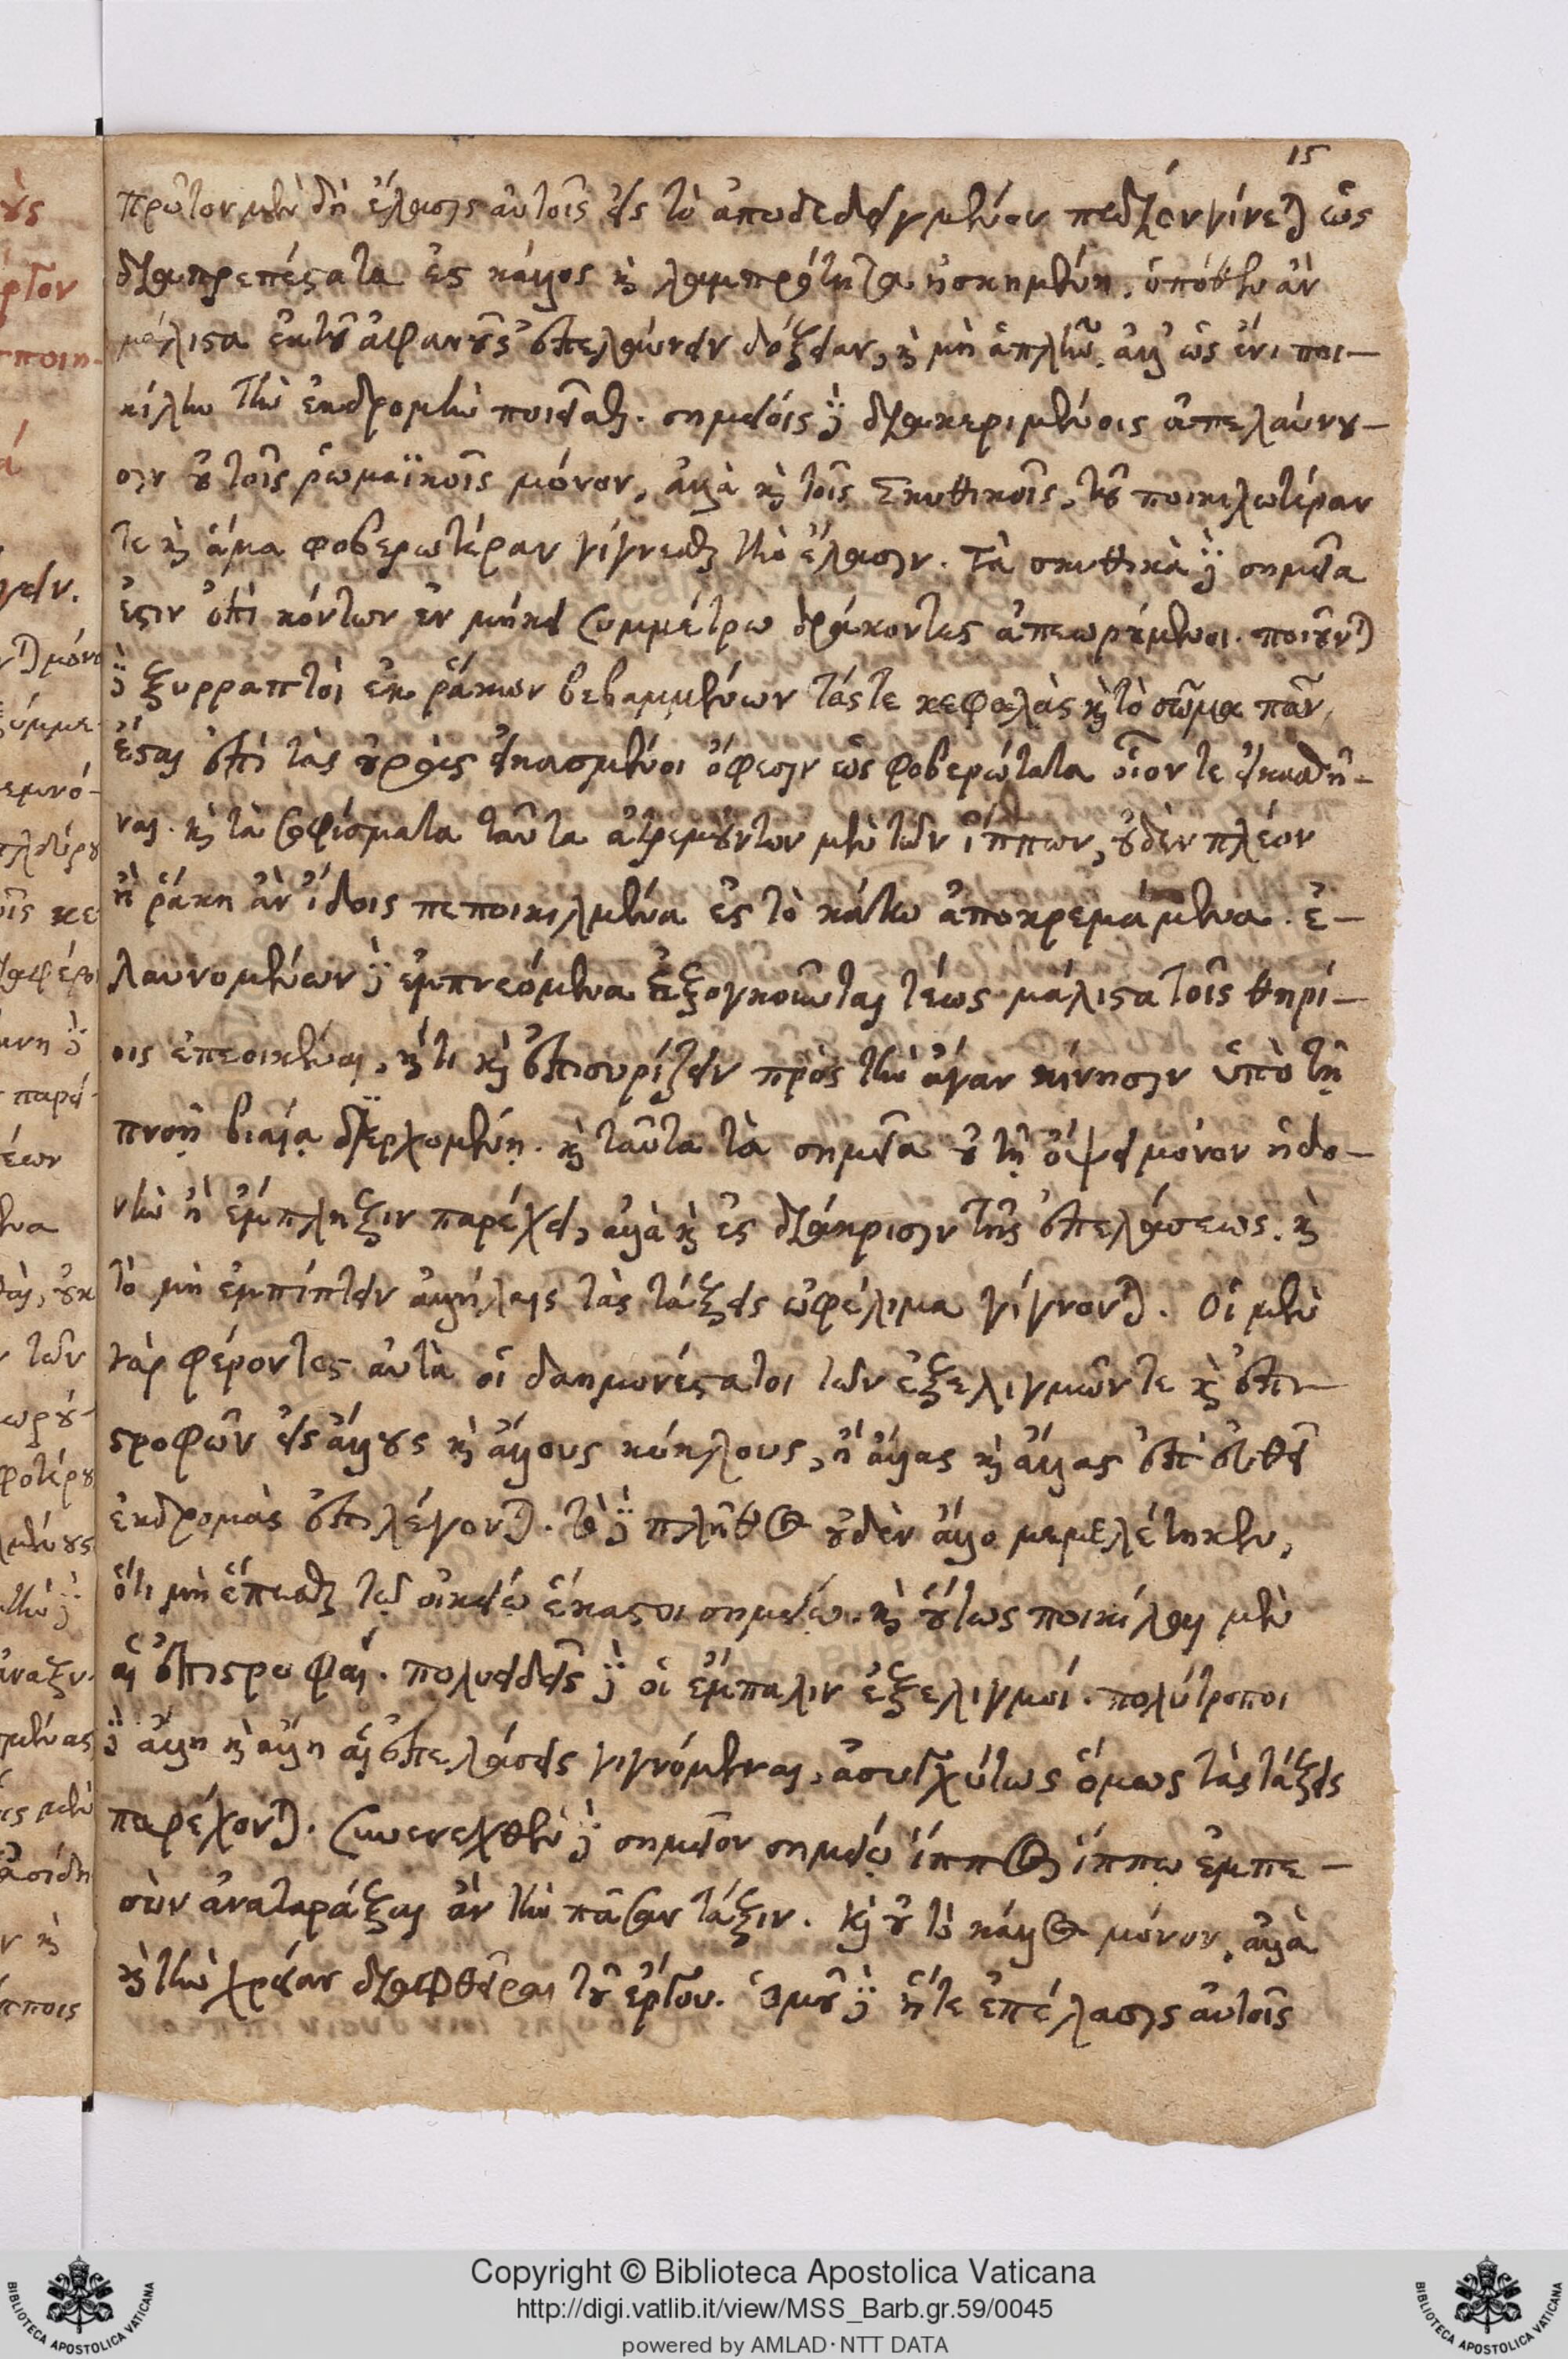 15
πρῶτον μὲν δὴ ἔλασις αὐτοῖς εἰς τὸ ἀποδεδειγμένον πεδίον γίνεται ὡς
διαπρεπέστατα ἐς κάλλος καὶ λαμπρότητα ἠσκημένη. ὁπόθεν ἂν
μάλιστα ἐκ τοῦ ἀφανοῦς ἐπελαύνειν δόξειαν, καὶ μὴ ἁπλῆν. ἀλλ' ὡς ἔνι ποι-
κίλην τὴν ἐκδρομὴν ποιεῖσθαι. σημείοις δὲ διακεκριμένοις ἀπελαύνου-
σιν οὐ τοῖς ῥωμαϊκοῖς μόνον, ἀλλὰ καὶ τοῖς Σκυθικοῖς, τοῦ ποικιλωτέραν
τε καὶ ἅμα φοβερωτέραν γίγνεσθαι τὴν ἔλασιν. Τὰ σκυθικὰ δὲ σημεῖα
ἐστιν ἐπὶ κόντων ἐν μήκει συμμέτρῳ δράκοντες ἀπεωρημένοι. ποιοῦνται
δὲ ξυρραπτοὶ ἐκ ῥάκων βεβαμμένων τάς τε κεφαλὰς καὶ τὸ σῶμα πᾶν,
ἔσται ἐπὶ τὰς οὐρὰς εἰκασμένοι ὄφεσιν ὡς φοβερώτατα οἷόν τε εἰκασθῆ-
ναι. καὶ τὰ σοφίσματα ταῦτα ἀτρεμούντων μὲν τῶν ἵππων, οὐδὲν πλέον
ἢ ῥάκη ἂν ἴδοις πεποικιλμένα ἐς τὸ κάτω ἀποκρεμάμενα. ἐ-
λαυνομένων δὲ ἐμπνεόμενα ἐξογκοῦνται τέως μάλιστα τοῖς θηρί-
οις ἐπεοικέναι, ἤ τι καὶ ἐπισυρίζειν πρὸς τὴν ἄγαν κίνησιν ὑπὸ τῇ
πνοῇ βιαίᾳ διερχομένῃ. καὶ ταῦτα τὰ σημεῖα οὐ τῇ ὄψει μόνον ἡδο-
νὴν ἢ ἔμπληξιν παρέχει, ἀλλὰ καὶ ἐς διάκρισιν τῆς ἐπελάσεως. καὶ
τὸ μὴ ἐμπίπτειν ἀλλήλαις τὰς τάξεις ὠφέλιμα γίγνονται. Οἱ μὲν
γὰρ φέροντες αὐτὰ οἱ δαημονέστατοι τῶν ἐξελιγμῶν τε καὶ ἐπι-
στροφῶν εἰς ἄλλους καὶ ἄλλους κύκλους, ἢ ἄλλας καὶ ἄλλας ἐπ' εὐθεῖ
ἐκδρομὰς ἐπιλέγονται. τὸ δὲ πλῆθος οὐδὲν ἄλλο μεμελέτηκεν,
ὅτι μὴ ἕπεσθαι τῷ οἰκείῳ ἕκαστοι σημείῳ. καὶ οὕτως ποικίλαι μὲν
αἱ ἐπιστροφαί. πολυειδεῖς δὲ οἱ ἔμπαλιν ἐξελιγμοί. πολύτροποι
δὲ ἄλλῃ καὶ ἄλλῃ αἱ ἐπελάσεις γιγνόμεναι, ἀσυγχύτως ὅμως τὰς τάξεις
παρέχονται. συνενεχθὲν δὲ σημεῖον σημείῳ ἵππος ἵππῳ ἐμπε-
σὼν ἀναταράξαι ἂν τὴν πᾶσαν τάξιν. καὶ οὐ τὸ κάλλος μόνον, ἀλλὰ
καὶ τὴν χρείαν διαφθεῖραι τοῦ ἔργου. Ὁμοῦ δὲ ἥ τε ἐπέλασις αὐτοῖς
Copyright © Biblioteca Apostolica Vaticana
http://digi.vatlib.it/view/MSS_Barb.gr.59/0045
powered by AMLAD · NTT DATA
BIBLIOTECA APOSTOLICA VATICANA
BIBLIOTECA APOSTOLICA VATICANA